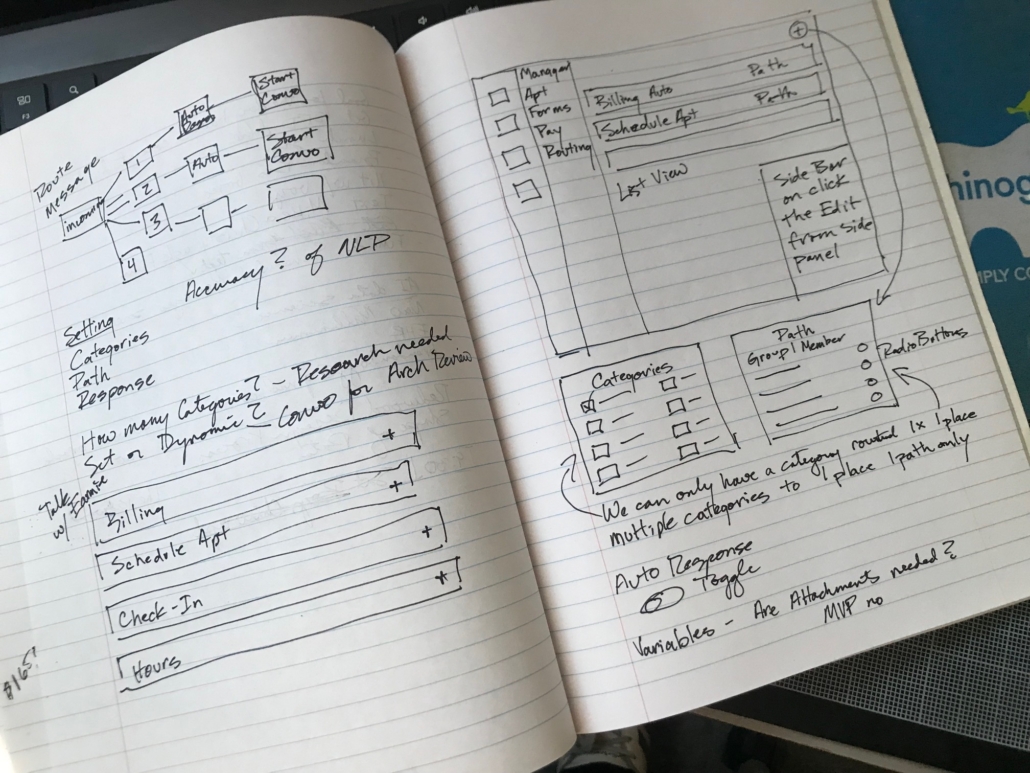 Route
Message
incoming
1
2
3
4
Auto
Auto
Start
Convo
Start
Convo
Accuracy? of NLP
Setting
Categories
Path
Response
How many Categories? - Research needed
Set or Dynamic? - Convo for Arch Review
Talk
w/
+
Billing +
Schedule Apt +
Check-In
Hours
$165!
+
Manage
Apt
Forms
Pay
Routing
Billing Auto Path
Schedule Apt Path
List View
Side Bar
on click
the Edit
from side
panel
Categories
Path
Group | Member
Radio Buttons
We can only have a category routed 1x 1 place
multiple categories to 1 place 1 path only
Auto Response
Toggle
Variables - Are Attachments needed?
MVP no
hinog
IPLY CO
F3